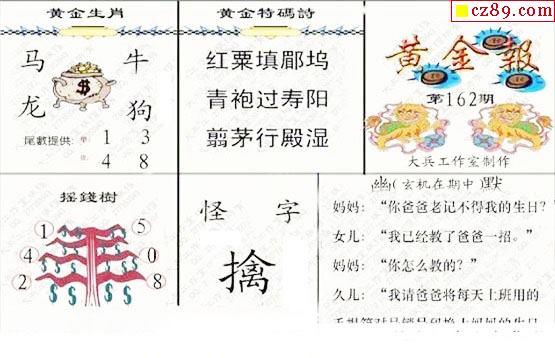 cz89.com
黄金生肖
马 牛
龙 狗
$
尾數提供: 單 1 3
4 8
黄金特碼詩
红粟填郿坞
青袍过寿阳
翦茅行殿湿
黄金報
第162期
大兵工作室制作
摇錢樹
1 5
4 0
2 8
怪 字
擒
幽(玄机在期中)默
妈妈:“你爸爸老记不得我的生日?
女儿:“我已经教了爸爸一招。”
妈妈:“你怎么教的?”
久儿:“我请爸爸将每天上班用的